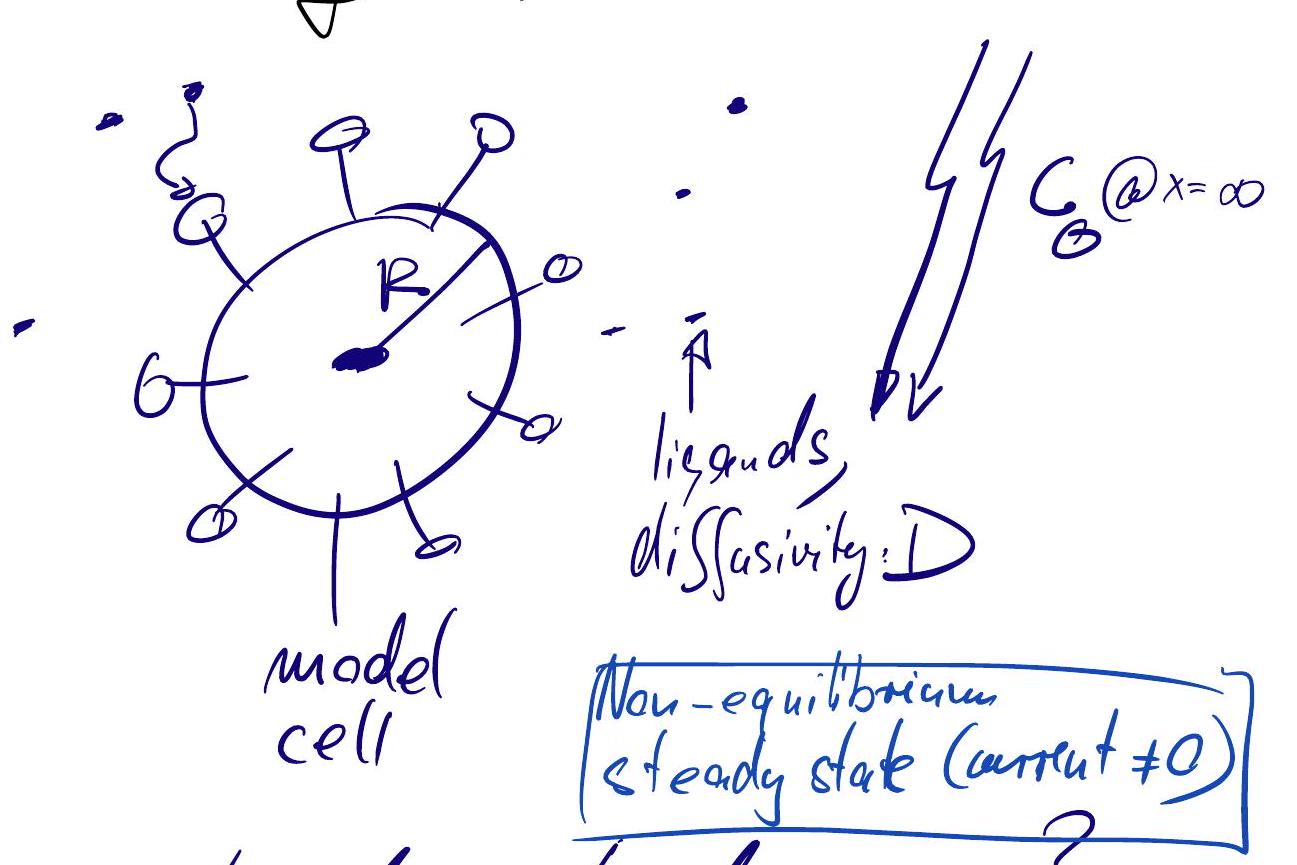 R
C₀ @ x = ∞
ligands,
diffusivity: D
model
cell
Non-equilibrium
steady state (current ≠ 0)
?